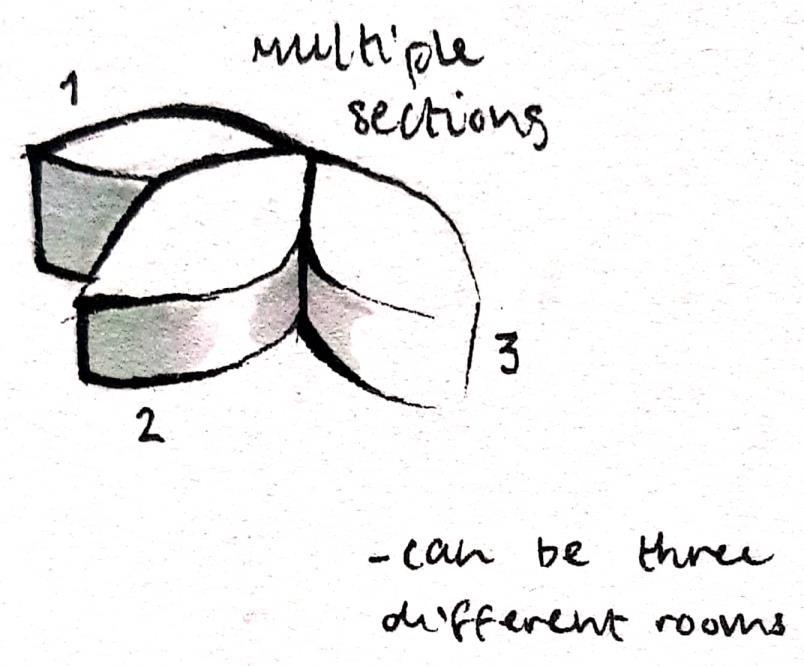 multiple
sections
1
2
3
- can be three
different rooms